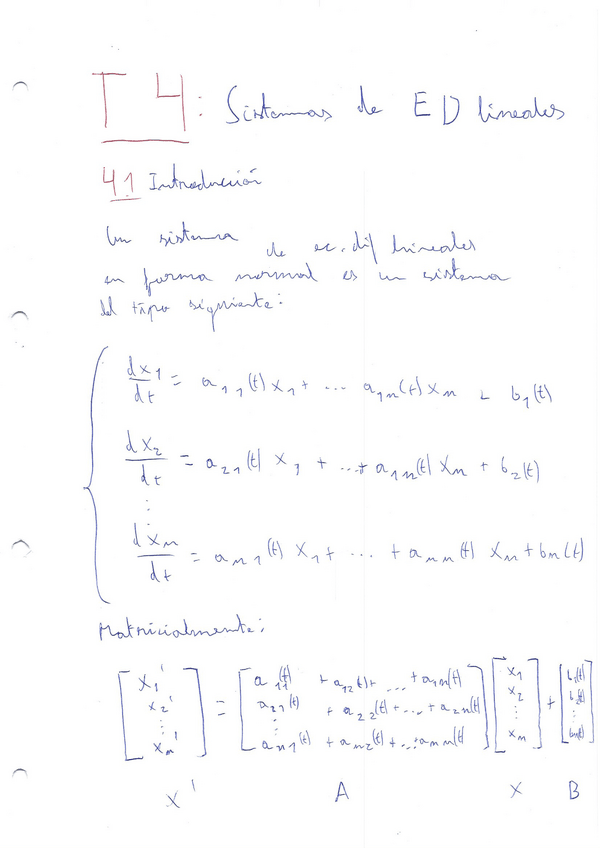 T 4: Sistemas de ED lineales
4.1 Introducción
Un sistema de ec. dif lineales
en forma normal es un sistema
del tipo siguiente:
dx₁/dt = a₁₁(t) x₁ + ... a₁ₙ(t) xₙ + b₁(t)
dx₂/dt = a₂₁(t) x₁ + ... + a₁ₙ(t) xₙ + b₂(t)
⋮
dxₙ/dt = aₙ₁(t) x₁ + ... + aₙₙ(t) xₙ + bₙ(t)
Matricialmente:
[x₁' x₂' ⋮ xₙ'] = [a₁₁(t) + a₁₂(t) + ... + a₁ₙ(t) a₂₁(t) + a₂₂(t) + ... + a₂ₙ(t) ⋮ aₙ₁(t) + aₙ₂(t) + ... + aₙₙ(t)] [x₁ x₂ ⋮ xₙ] + [b₁(t) b₂(t) ⋮ bₙ(t)]
X' A X B